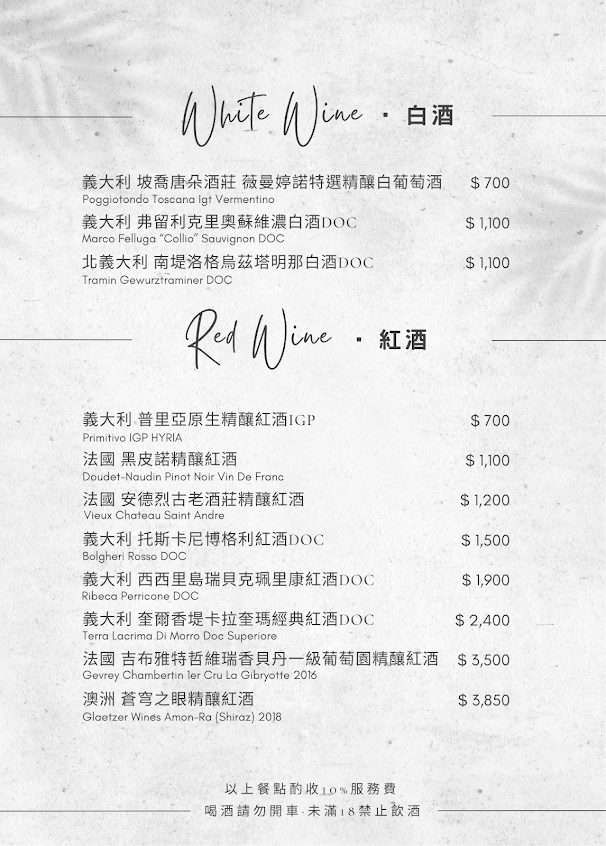 White Wine · 白酒
義大利 坡喬唐朵酒莊 薇曼婷諾特選精釀白葡萄酒 $ 700
Poggiotondo Toscana Igt Vermentino
義大利 弗留利克里奧蘇維濃白酒DOC $ 1,100
Marco Felluga "Collio" Sauvignon DOC
北義大利 南堤洛格烏茲塔明那白酒DOC $ 1,100
Tramin Gewurztraminer DOC
Red Wine · 紅酒
義大利 普里亞原生精釀紅酒IGP $ 700
Primitivo IGP HYRIA
法國 黑皮諾精釀紅酒 $ 1,100
Doudet-Naudin Pinot Noir Vin De Franc
法國 安德烈古老酒莊精釀紅酒 $ 1,200
Vieux Chateau Saint Andre
義大利 托斯卡尼博格利紅酒DOC $ 1,500
Bolgheri Rosso DOC
義大利 西西里島瑞貝克珮里康紅酒DOC $ 1,900
Ribeca Perricone DOC
義大利 奎爾香堤卡拉奎瑪經典紅酒DOC $ 2,400
Terra Lacrima Di Morro Doc Superiore
法國 吉布雅特哲維瑞香貝丹一級葡萄園精釀紅酒 $ 3,500
Gevrey Chambertin 1er Cru La Gibryotte 2016
澳洲 蒼穹之眼精釀紅酒 $ 3,850
Glaetzer Wines Amon-Ra (Shiraz) 2018
以上餐點酌收10%服務費
喝酒請勿開車·未滿18禁止飲酒